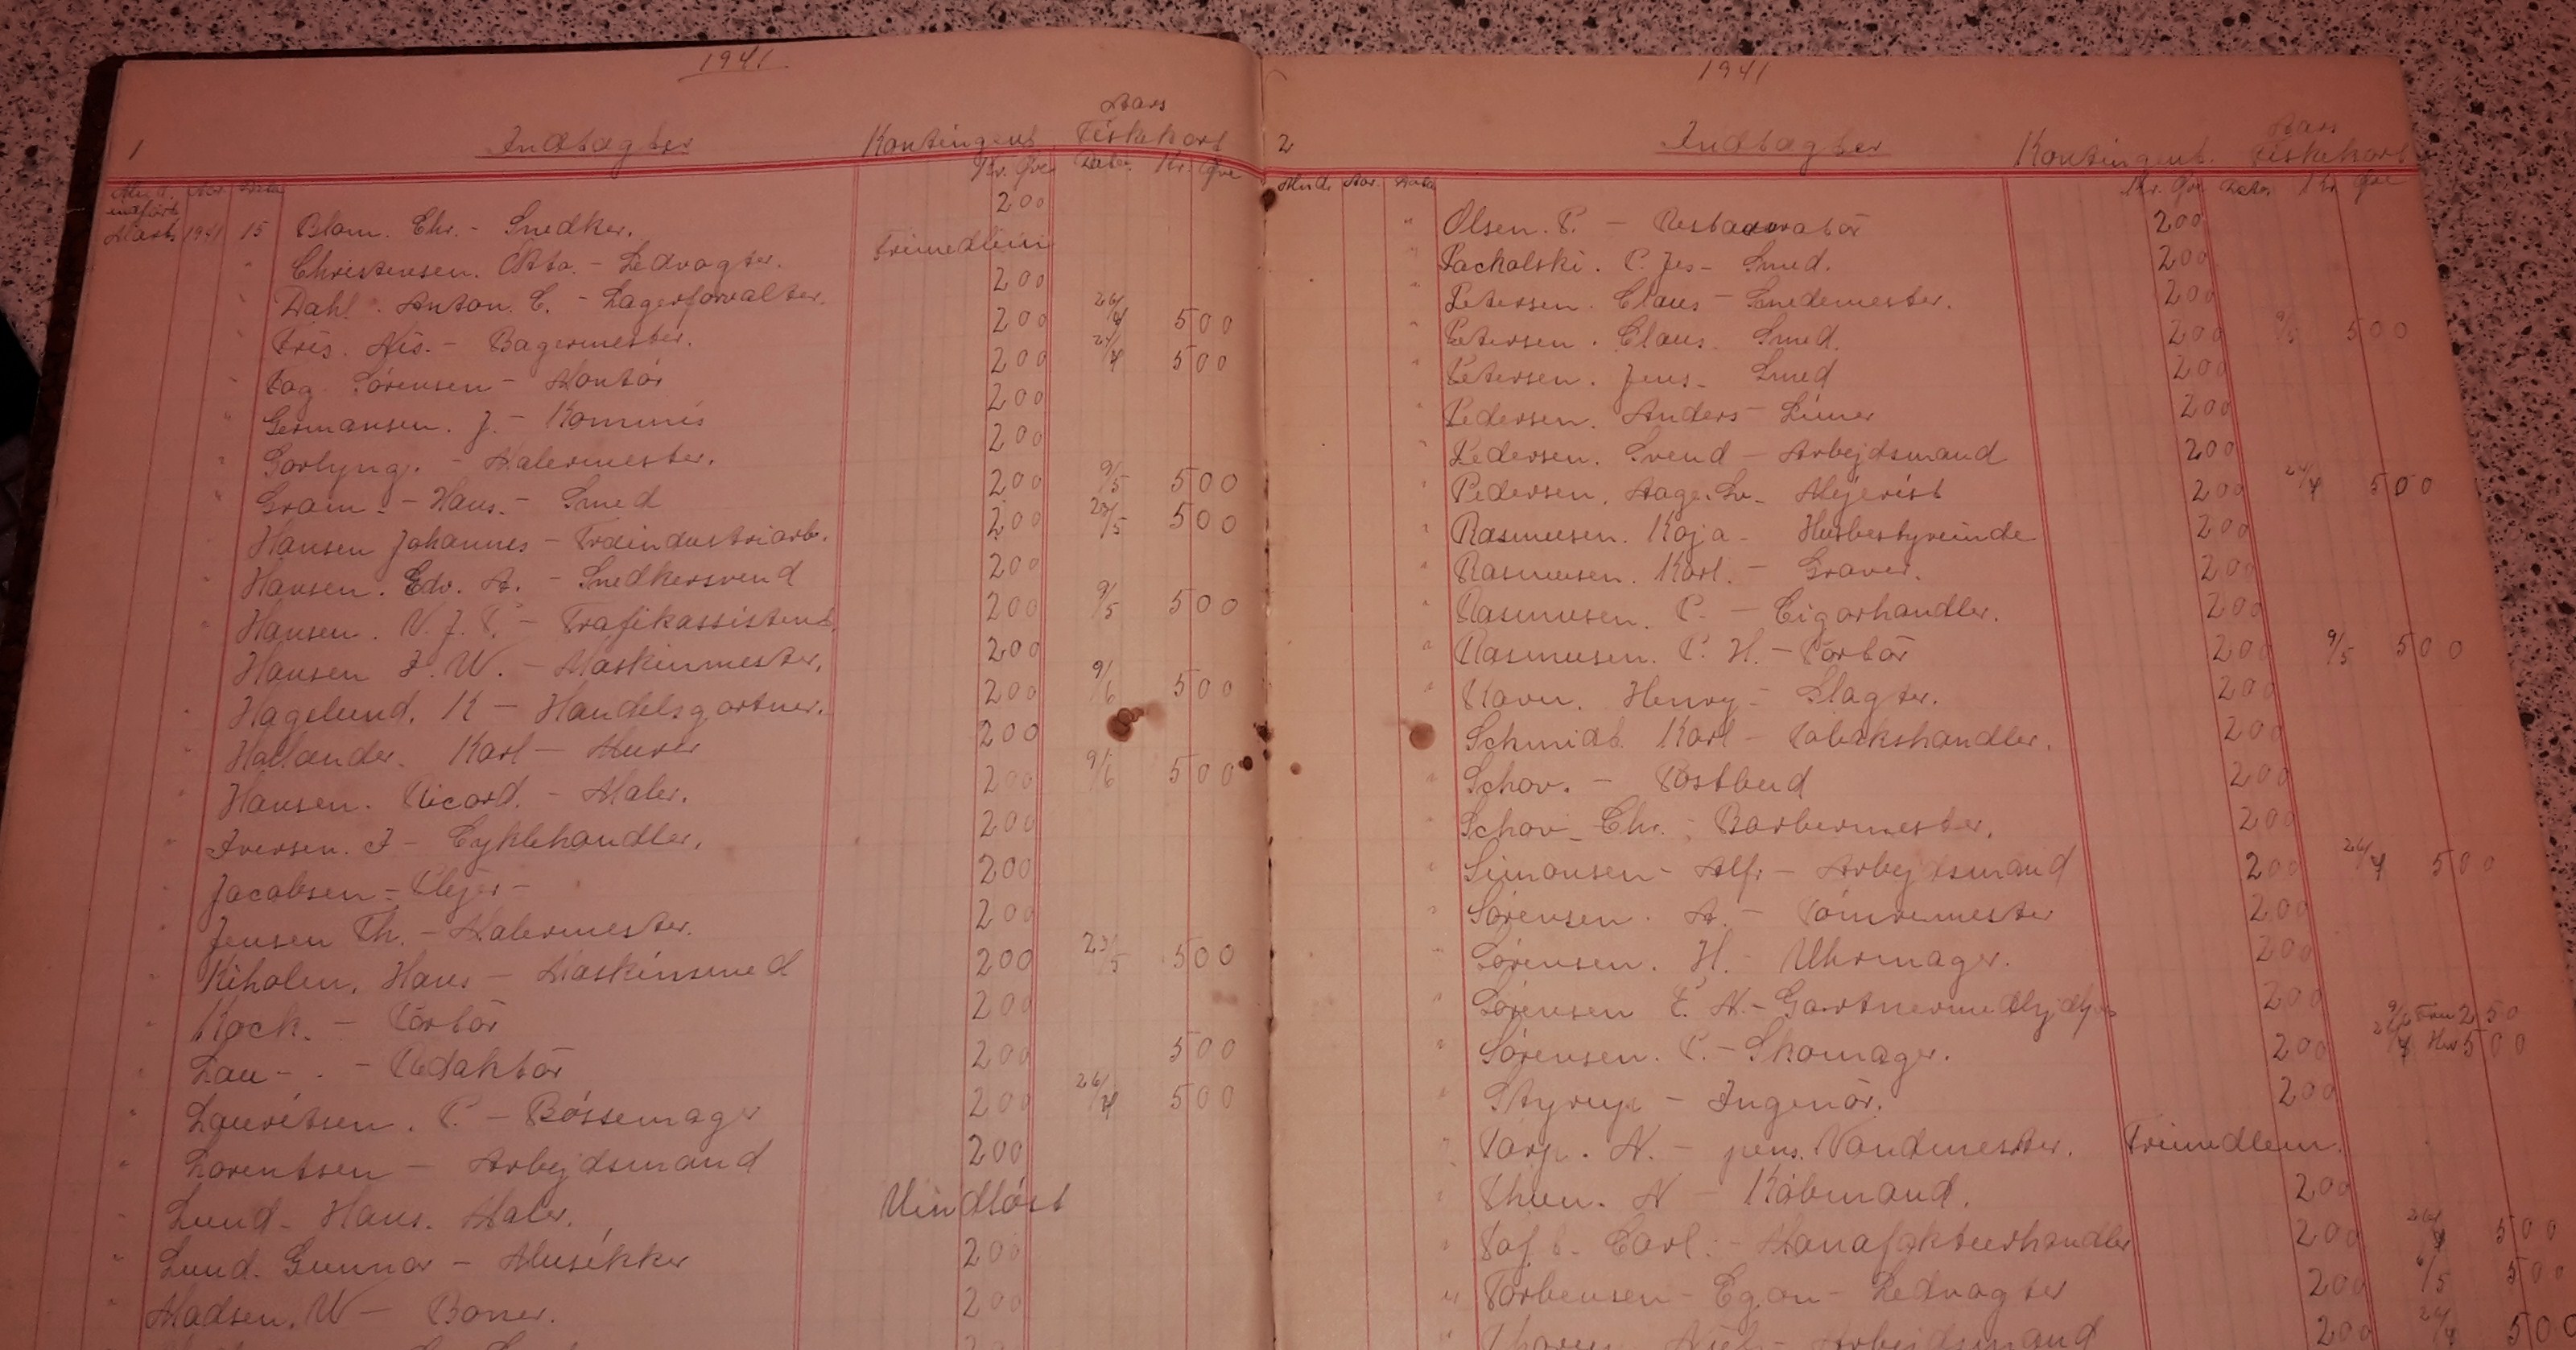 1941
1 Indtægter Kontingent Aars Fiskekort
Kr. Øre Dato. Kr. Øre
Aar. Dato
Marts 1941 15 Blom. Chr. - Snedker. 200
" Christensen. Otto. - Ledvogter. Frimedlem
" Dahl. Anton. C. - Lagerforvalter. 200
" Friis. Nis. - Bagermester. 200 26/4 500
" Fog Sørensen - Kontor 200 24/4 500
" Germansen. J. - Kommis 200
" - Malermester. 200
" Gram. - Hans. - Smed 200 9/5 500
Hansen Johannes - Træindustriarb. 200 23/5 500
" Hansen. Edv. A. - Snedkersvend 200
" Hansen. N. J. P. - Trafikassistent. 200 9/5 500
Hansen F. W. - Maskinmester. 200
" Hagelund. K - Handelsgartner. 200 9/6 500
" Hollænder. Karl - Murer 200
Hansen. Ricard. - Maler. 200 9/6 500
" Iversen. I - Cyklehandler. 200
" Jacobsen - Plejer - 200
" Jensen Th. - Malermester. 200
" Hans - Maskinsmed 200 23/5 500
" Kock. - Kontør 200
" Lau - . - Redaktør 200 500
" Lauritsen. P. - Bøssemager 200 26/4 500
" Lorentsen - Arbejdsmand 200
" Lund - Hans. Maler. Uindløst
" Lund. Gunnar - Musikker 200
" Madsen. W - 200
1941
2 Indtægter Kontingent. Aars Fiskekort
Aar. Dato Kr. Øre Dato. Kr. Øre
" Olsen. P. - Restauratør 200
" Pacholski. P. Jes - Smed. 200
" Petersen. Claus - Smedemester. 200
" Petersen. Claus. Smed. 200 9/5 500
" Petersen. Jens - Smed 200
" Pedersen. Anders - 200
" Pedersen. Svend - Arbejdsmand 200
" Pedersen. Aage. - Mejerist 200 24/4 500
" Rasmussen. Kaja - Husbestyrerinde 200
" Rasmussen. Karl. - Graver. 200
" Rasmussen. P. - Cigarhandler. 200
" Rasmussen. P. H. - 200 9/5 500
" Ravn. Henry - Slagter. 200
Schmidt Karl - Tobakshandler. 200
" Schov. - Postbud 200
" Schov - Chr. - Barbermester. 200
" Simonsen - Alfr - Arbejdsmand 200 26/4 500
" Sørensen. A. - Tømrermester 200
" Sørensen. H. - Uhrmager. 200
" Sørensen P. N. - Gartnermedhjælper 200
" Sørensen. P. - Skomager. 200 9/6 Fru 250 26/4 Hr 500
" Styrup - Ingenør. 200
" Torp. N. - pens. Vandmester. Frimedlem.
" Thun. N - Købmand. 200
" Toft. Carl. - Manafakturhandler 200 26/4 500
" Torbensen - Egon - Ledvogter 200 6/5 500
" Niels - Arbejdsmand 200 26/4 500